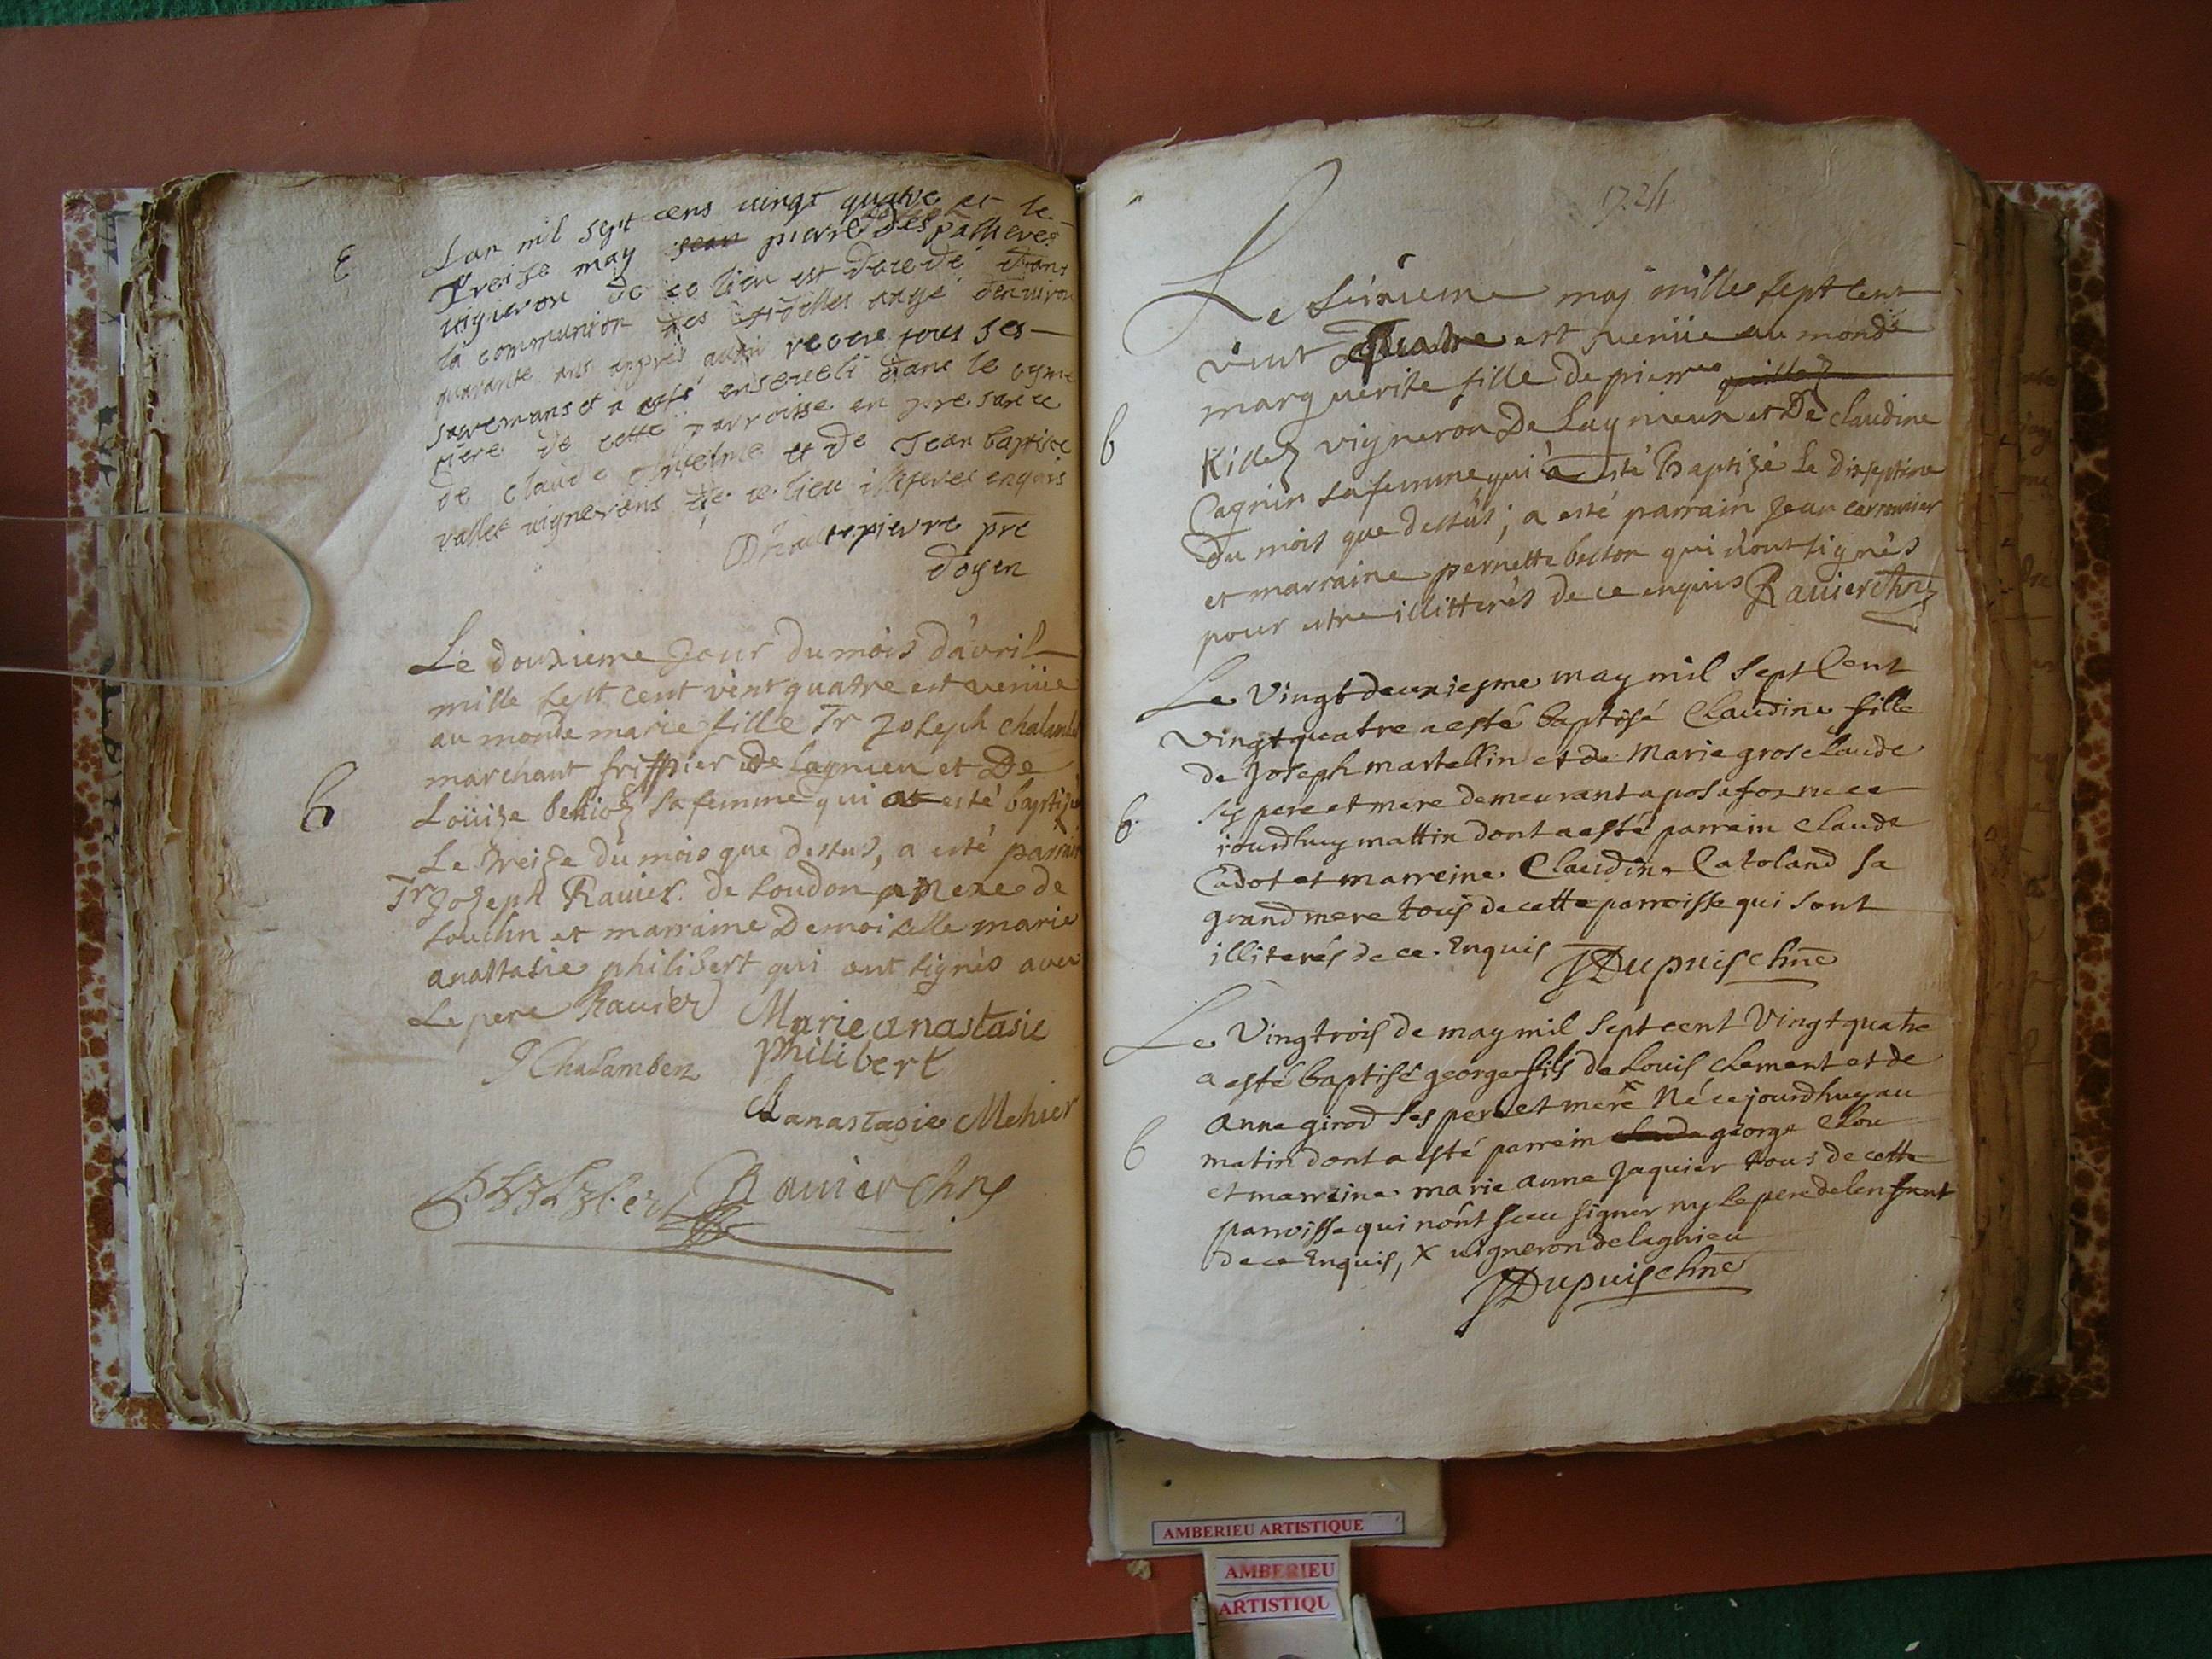 E
Lan mil sept cens vingt quatre et le
treise may jean pierre des pallieres
vigneron de ce lieu est decedé dans
la communion des fidelles aagé denviron
quarante ans appres avoir receu tous ses
sacremans et a esté enseveli dans le cyme
tiere de cette parroisse en presance
de claude Anselme et de Jean baptiste
vallet vignerons de ce lieu illiteres enquis
Dhautepierre pre
doyen
Le douxieme Jour du mois d'avril
mille sept cent vint quatre est venüe
au monde marie fille Sr Joseph chalambel
marchant frippier de lagnieu et De
B
Loüise belliod sa femme qui a esté baptizé
Le treize du mois que dessus, a esté parrain
Sr Jozeph Ravier de loudon anexe de
et marraine Demoiselle marie
anastasie philibert qui ont signés avec
Le pere Ravier
Marie anastasie
philibert
J Chalamben
anastasie Mehier
Ravier chne
1724
Le seixieme may mille sept cent
vint quatre est venüe au monde
marguerite fille de pierre
B
Killed vigneron De Lagnieux et De claudine
Cagnin sa femme qui a esté Baptizé Le dixseptiéme
du mois que dessus; a esté parrain Jean
et marraine pernette qui n'ont signés
pour etre illitterés de ce enquis Ravier chne
Le Vingt deuxiesme may mil sept Cent
Vingt quatre a esté baptisé Claudine fille
de Joseph martellin et de Marie grosclaude
ses pere et mere demeurant a née ce
B
jourdhuy mattin dont a esté parrein Claude
Cadot et marreine Claudine Catoland sa
grand mere tous de cette parroisse qui sont
illiterés de ce Enquis JDupuis chne
Le Vingtrois de may mil sept cent Vingt quatre
a esté baptisé george fils de Louis Clement et de
Anne girod ses pere et mere x Né ce jourdhuy au
B
matin dont a esté parrein george Clou
et marreine marie anne Jaquier tous de cette
parroisse qui n'ont sceu signer ny le pere de lenfant
de ce Enquis, x vigneron de lagnieu
JDupuis chne
AMBERIEU ARTISTIQUE
AMBERIEU
ARTISTIQU